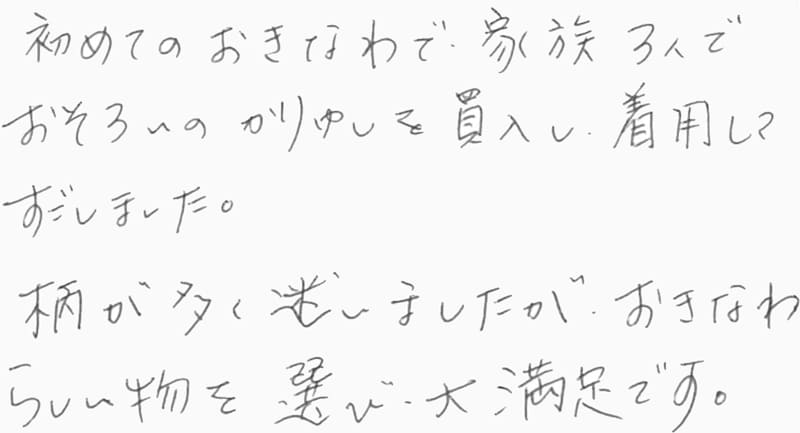 初めてのおきなわで、家族3人で
おそろいのかりゆしを買入し、着用して
すごしました。
柄が多く迷いましたが、おきなわ
らしい物を選び、大満足です。